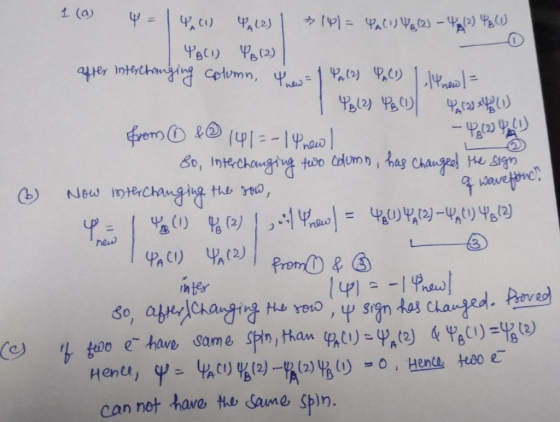 1 (a) Ψ = | Ψ_A(1) Ψ_A(2) | ⇒ |Ψ| = Ψ_A(1) Ψ_B(2) − Ψ_A(2) Ψ_B(1)
| Ψ_B(1) Ψ_B(2) | ①
after interchanging column, Ψ_new = | Ψ_A(2) Ψ_A(1) | , |Ψ_new| =
| Ψ_B(2) Ψ_B(1) | Ψ_A(2) × Ψ_B(1)
− Ψ_B(2) Ψ_A(1)
from ① & ② |Ψ| = − |Ψ_new| ②
So, interchanging two column, has changed the sign
of wavefunc".
(b) Now interchanging the row,
Ψ_new = | Ψ_B(1) Ψ_B(2) | , ∴ |Ψ_new| = Ψ_B(1) Ψ_A(2) − Ψ_A(1) Ψ_B(2)
| Ψ_A(1) Ψ_A(2) | ③
from ① & ③
|Ψ| = − |Ψ_new|
So, after / inter changing the row, Ψ sign has changed. Proved
(c) if two e⁻ have same spin, than Ψ_A(1) = Ψ_A(2) & Ψ_B(1) = Ψ_B(2)
Hence, Ψ = Ψ_A(1) Ψ_B(2) − Ψ_A(2) Ψ_B(1) = 0, Hence two e⁻
can not have the same spin.